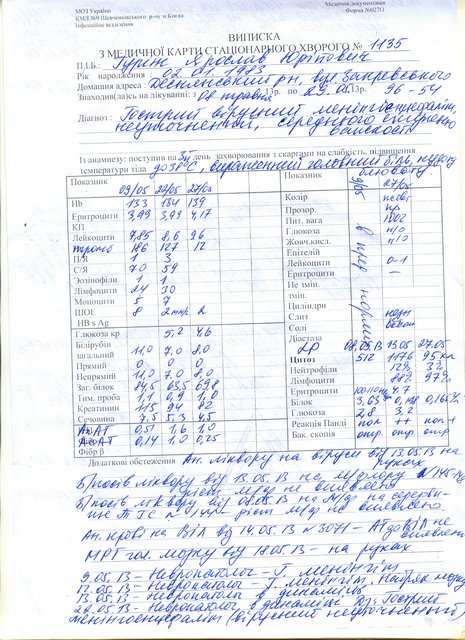 МОЗ України
КМЛ №9 Шевченківського р-ну м.Києва
Інфекційне відділення
Медична документація
Форма №027О
ВИПИСКА
З МЕДИЧНОЇ КАРТИ СТАЦІОНАРНОГО ХВОРОГО № 1135
П.І.Б.: Ярослав Юрійович
Рік народження : 02.01.1983
Домашня адреса : Деснянський рн, вул. Закревського
Знаходив(ла)сь на лікуванні: з 08 травня 13р. по 29.05.13р. 96-54
Діагноз : Гострий вірусний менінгоенцефаліт,
неуточнений, середнього ступеню
важкості
Із анамнезу: поступив на 3й день захворювання з скаргами на слабкість, підвищення
температури тіла до 38°C, виражений головний біль, нудоту
блювоту
Показник 09/05 22/05 27/05
Hb 133 134 139
Еритроцити 3,99 3,93 4,17
КП
Лейкоцити 7,85 8,6 9,6
тромб 186 127 12
П/Я 1 3
С/Я 70 59
Эозинофіли 1 1
Лімфоцити 24 30
Моноцити 5 7
ШОЕ 8 2 2
HB s Ag
Глюкоза кр 5,2 4,6
Білірубін
загальний 11,0 7,0 8,0
Прямий 0 0 0
Непрямий 11,0 7,0 8,0
Заг. білок 84,5 63,5 69,8
Тим. проба 1,1 0,9 1,0
Креатинин 115 94 82
Сечовина 7,5 5,3 4,5
АлАТ 0,51 1,6 1,0
АсАТ 0,14 1,0 0,25
Фібр β
Показник 9/05 27/05
Колір
Прозор. пр
Пит. вага
Глюкоза н/о
Жовч.кисл. н/о
Епітелій
Лейкоцити 0-1
Еритроцити —
Не змін.
змін.
Циліндри
Слиз
Солі
Діастаза
в пер норми
СМР 08.05.13 13.05 27.05
Цитоз 512 1176 95 кл
Нейтрофіли 12% 3%
Лімфоцити 88% 97%
Еритроцити 4,7
Білок 3,63 0,165%
Глюкоза 2,8 3,2
Реакция Панді пол ++ пол+
Бак. скопія отр. отр. отр
Додаткові обстеження Ан. ліквору на віруси від 13.05.13 на
руках
Б/посів ліквору від 13.05.13 на м/флору №145-
ріст м/ф не виявлено
Б/посів ліквору від 08.05.13 на м/ф на
ріст м/ф не виявлено.
Ан. крові на ВІЛ від 14.05.13 №3071 – АТ до ВІЛ не
виявлено
МРТ гол. мозку від 17.05.13 – на руках
9.05.13 – Невропатолог – Г. менінгіт
12.05.13 – Невропатолог – Г. менінгіт, набряк мозку
13.05.13 – Невропатолог в динаміці
29.05.13 – Невропатолог в динаміці Ds: Гострий
менінгоенцефаліт (вірусний неуточнений)